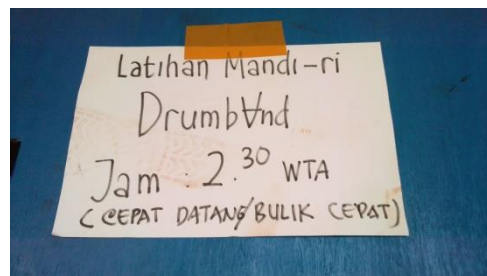 Latihan Mandi-ri
Drumb∀nd
Jam : 2.30 WTA
(CEPAT DATANG/BULIK CEPAT)